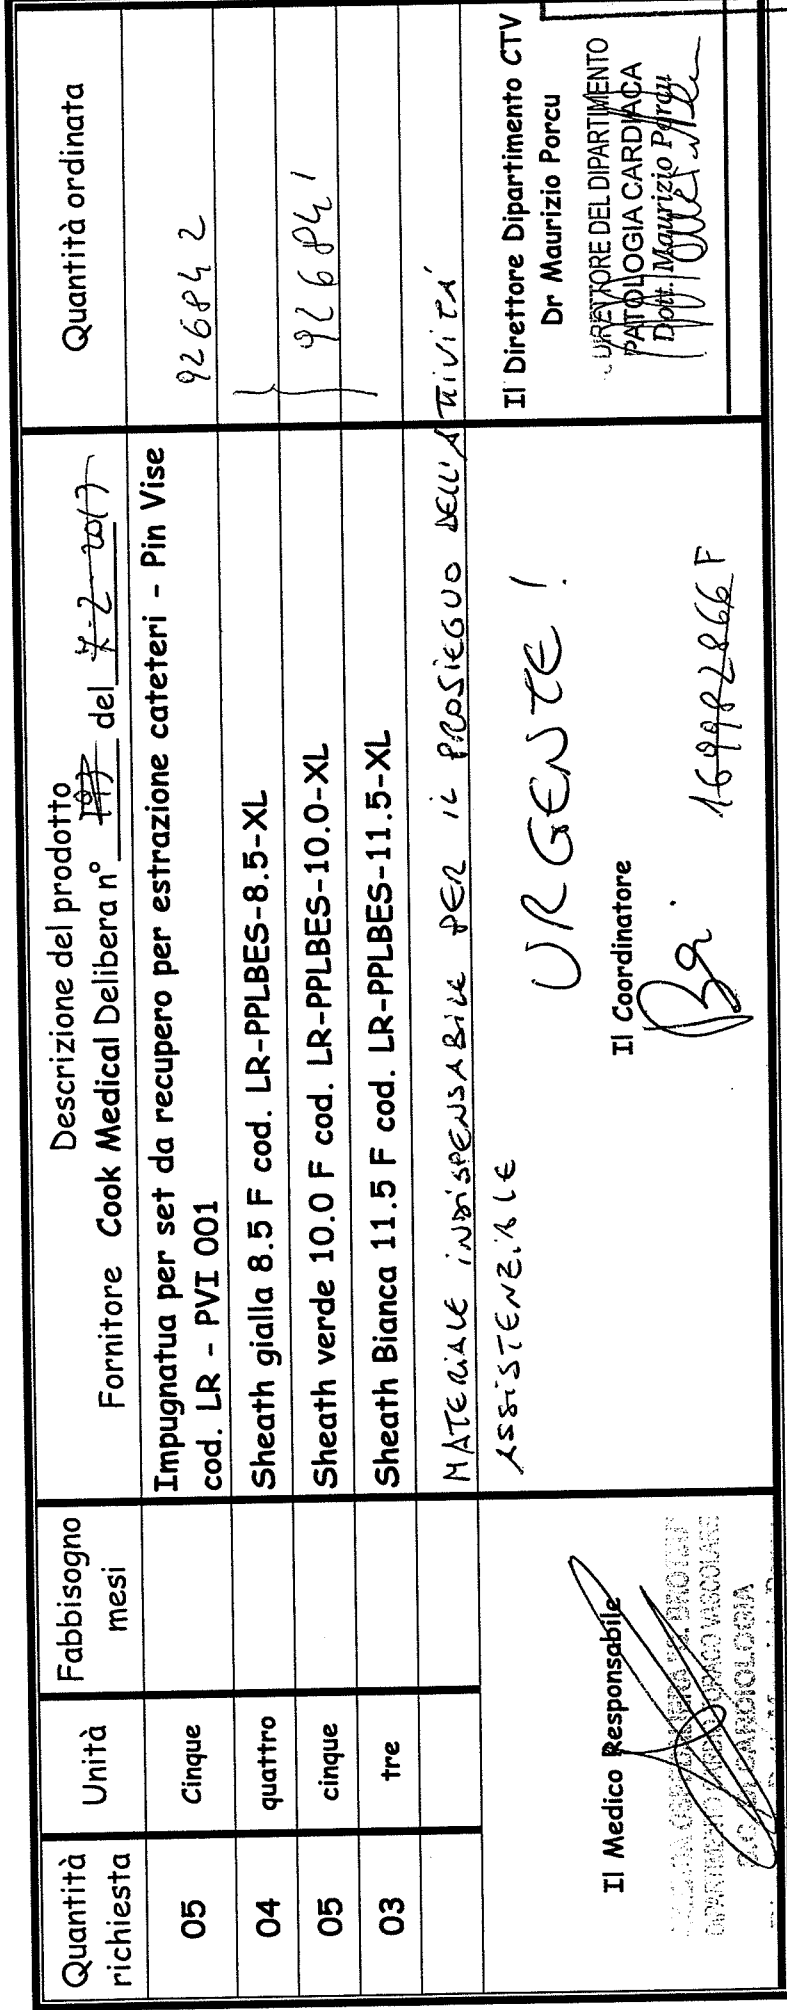 Quantità richiesta
Unità
Fabbisogno mesi
Descrizione del prodotto
Fornitore Cook Medical Delibera n° 197 del 7-2-2017
Quantità ordinata
05 Cinque Impugnatua per set da recupero per estrazione cateteri - Pin Vise 926842
cod. LR - PVI 001
04 quattro Sheath gialla 8.5 F cod. LR-PPLBES-8.5-XL
05 cinque Sheath verde 10.0 F cod. LR-PPLBES-10.0-XL 926841
03 tre Sheath Bianca 11.5 F cod. LR-PPLBES-11.5-XL
MATERIALE INDISPENSABILE PER IL PROSIEGUO DELL'ATTIVITÀ
ASSISTENZIALE
URGENTE !
Il Medico Responsabile
CARDIOLOGIA
Il Coordinatore
169982866F
Il Direttore Dipartimento CTV
Dr Maurizio Porcu
DIRETTORE DEL DIPARTIMENTO
PATOLOGIA CARDIACA
Dott. Maurizio Porcu